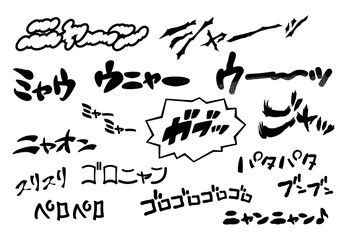 ニャーーン
シャーーッ
ミャウ
ウニャー
ウーーッ
ミャーミャー
ガブッ
ジャッ
ニャオン
スリスリ
ゴロニャン
パタパタ
ブンブン
ペロペロ
ゴロゴロゴロゴロ
ニャンニャン♪